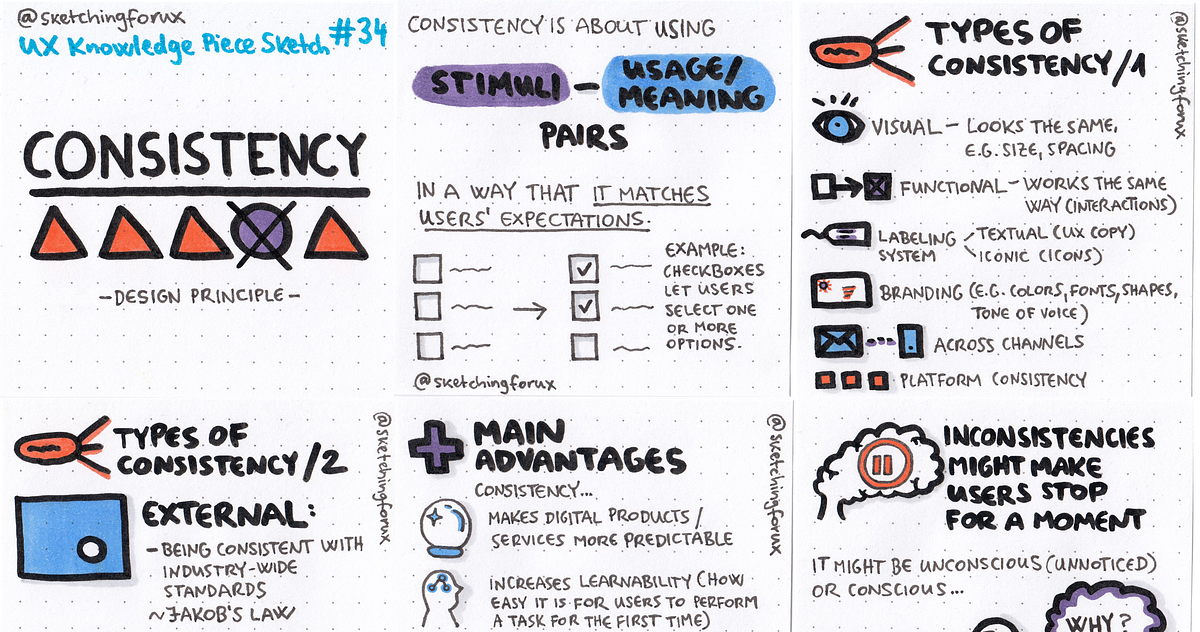 @sketchingforux
UX Knowledge Piece Sketch #34
CONSISTENCY
-DESIGN PRINCIPLE-
CONSISTENCY IS ABOUT USING
STIMULI - USAGE/
MEANING
PAIRS
IN A WAY THAT IT MATCHES
USERS' EXPECTATIONS.
EXAMPLE:
CHECKBOXES
LET USERS
SELECT ONE
OR MORE
OPTIONS.
@sketchingforux
TYPES OF
CONSISTENCY/1
@sketchingforux
VISUAL - LOOKS THE SAME,
E.G. SIZE, SPACING
FUNCTIONAL - WORKS THE SAME
WAY (INTERACTIONS)
LABELING
SYSTEM
TEXTUAL (UX COPY)
ICONIC (ICONS)
BRANDING (E.G. COLORS, FONTS, SHAPES,
TONE OF VOICE)
ACROSS CHANNELS
PLATFORM CONSISTENCY
TYPES OF
CONSISTENCY/2
@sketchingforux
EXTERNAL:
- BEING CONSISTENT WITH
INDUSTRY-WIDE
STANDARDS
~JAKOB'S LAW
MAIN
ADVANTAGES
@sketchingforux
CONSISTENCY...
MAKES DIGITAL PRODUCTS/
SERVICES MORE PREDICTABLE
INCREASES LEARNABILITY (HOW
EASY IT IS FOR USERS TO PERFORM
A TASK FOR THE FIRST TIME)
INCONSISTENCIES
MIGHT MAKE
USERS STOP
FOR A MOMENT
IT MIGHT BE UNCONSCIOUS (UNNOTICED)
OR CONSCIOUS...
WHY?